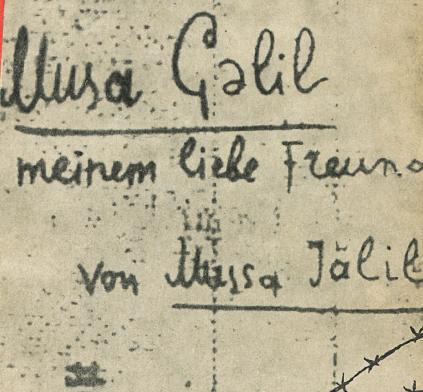 Musa Gəlil
meinem liebe Freund
von Mussa Jälil